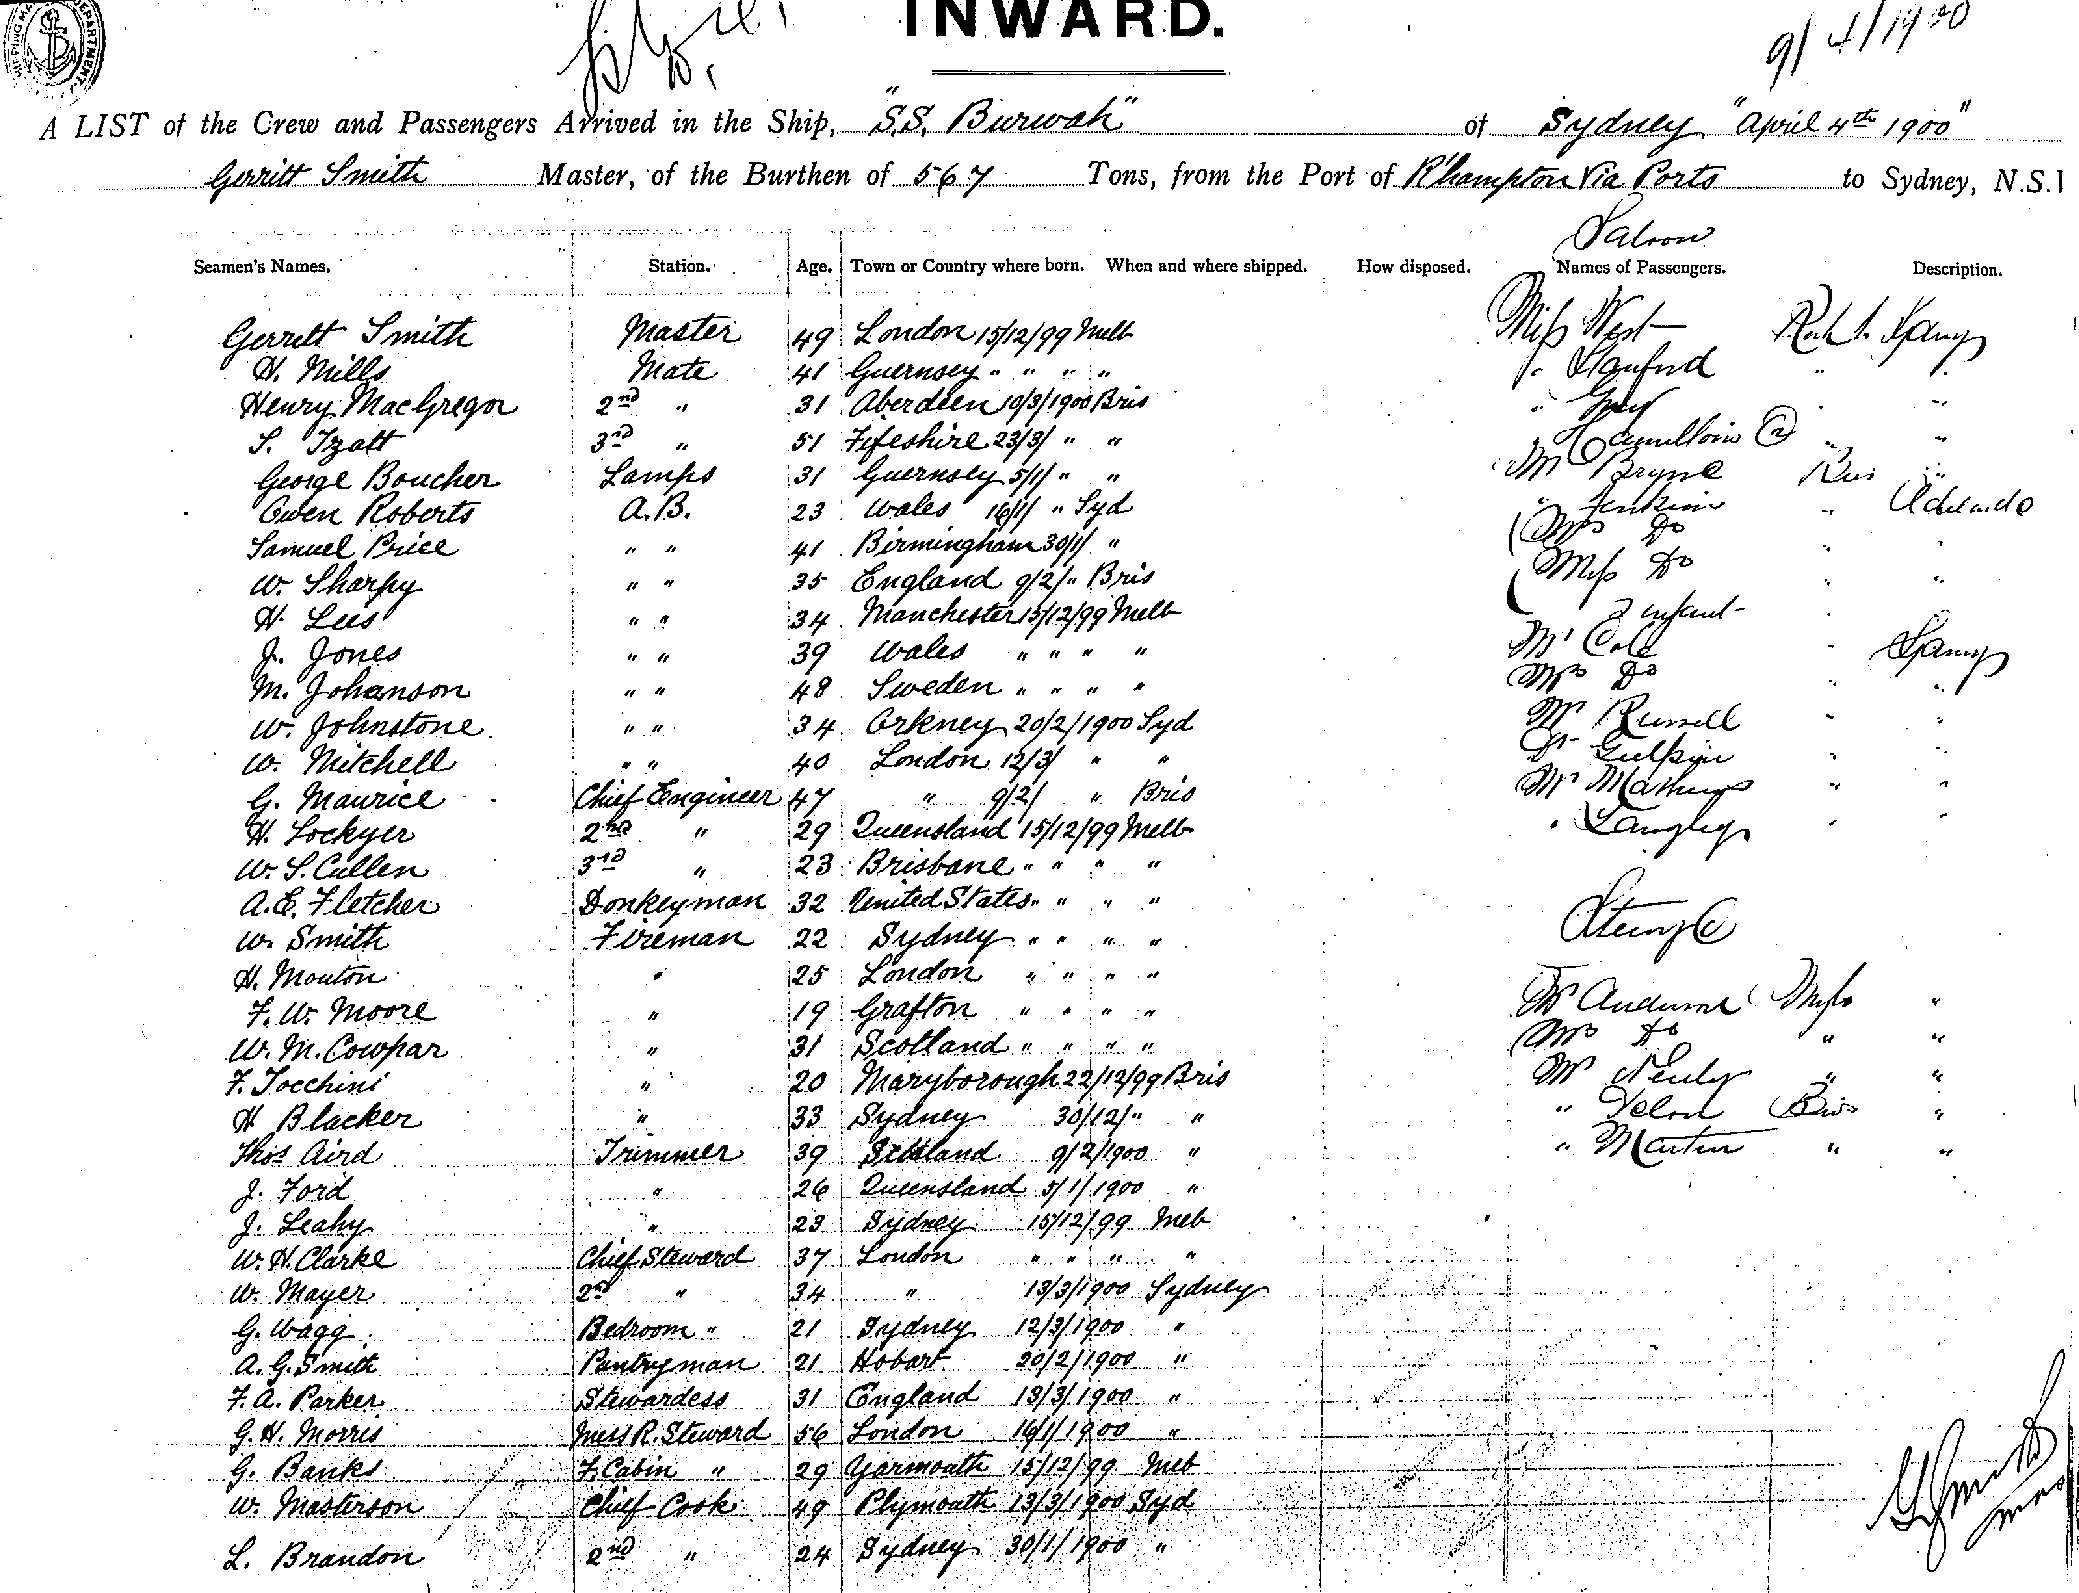 INWARD.
9/4/1900
A LIST of the Crew and Passengers Arrived in the Ship, "S.S. Burwah" of Sydney "April 4th 1900"
Gerritt Smith Master, of the Burthen of 567 Tons, from the Port of R'hampton Via Ports to Sydney, N.S.
Saloon
Seamen's Names. Station. Age. Town or Country where born. When and where shipped. How disposed. Names of Passengers. Description.
Gerritt Smith Master 49 London 15/12/99 Melb Miss West
H. Mills Mate 41 Guernsey " " " " " Stanford
Henry MacGregor 2nd " 31 Aberdeen 10/3/1900 Bris "
S. Izatt 3rd " 51 Fifeshire 23/3/ " "
George Boucher Lamps 31 Guernsey 5/1/ " " Mr Bryne
Owen Roberts A.B. 23 Wales 16/1/ " Syd " Jenkins " Adelaide
Samuel Price " " 41 Birmingham 30/1/ " Mrs Do
W. Sharpy " " 35 England 9/2/ " Bris Miss Do
H. Lees " " 34 Manchester 15/12/99 Melb 2 infant
J. Jones " " 39 Wales " " " " Mr Cole
M. Johanson " " 48 Sweden " " " " Mrs Do
W. Johnstone " " 34 Orkney 20/2/1900 Syd Mr Russell
W. Mitchell " " 40 London 12/3/ " "
G. Maurice Chief Engineer 47 " 9/2/ " Bris Mr Mathews
H. Lockyer 2nd " 29 Queensland 15/12/99 Melb " Langley
W. S. Cullen 3rd " 23 Brisbane " " " "
A. E. Fletcher Donkeyman 32 United States " " " "
W. Smith Fireman 22 Sydney " " " "
H. Mouton " 25 London " " " "
F. W. Moore " 19 Grafton " " " " Mr
W. M. Cowpar " 31 Scotland " " " " Mrs Do " "
F. Tocchini " 20 Maryborough 22/12/99 Bris Mr " "
H Blacker " 33 Sydney 30/12/ " " " Bris "
Thos Aird Trimmer 39 Scotland 9/2/1900 " " Martin " "
J. Ford " 26 Queensland 5/1/1900 "
J. Leahy " 23 Sydney 15/12/99 Melb
W. H. Clarke Chief Steward 37 London " " " "
W. Mayer 2nd " 34 " 13/3/1900 Sydney
G. Wagg Bedroom " 21 Sydney 12/3/1900 "
A. G. Smith Pantryman 21 Hobart 20/2/1900 "
F. A. Parker Stewardess 31 England 13/3/1900 "
G. H. Morris Mess R. Steward 56 London 16/1/1900 "
G. Banks F. Cabin " 29 Yarmouth 15/12/99 Melb
W. Masterson Chief Cook 49 Plymouth 13/3/1900 Syd
L. Brandon 2nd " 24 Sydney 30/1/1900 "